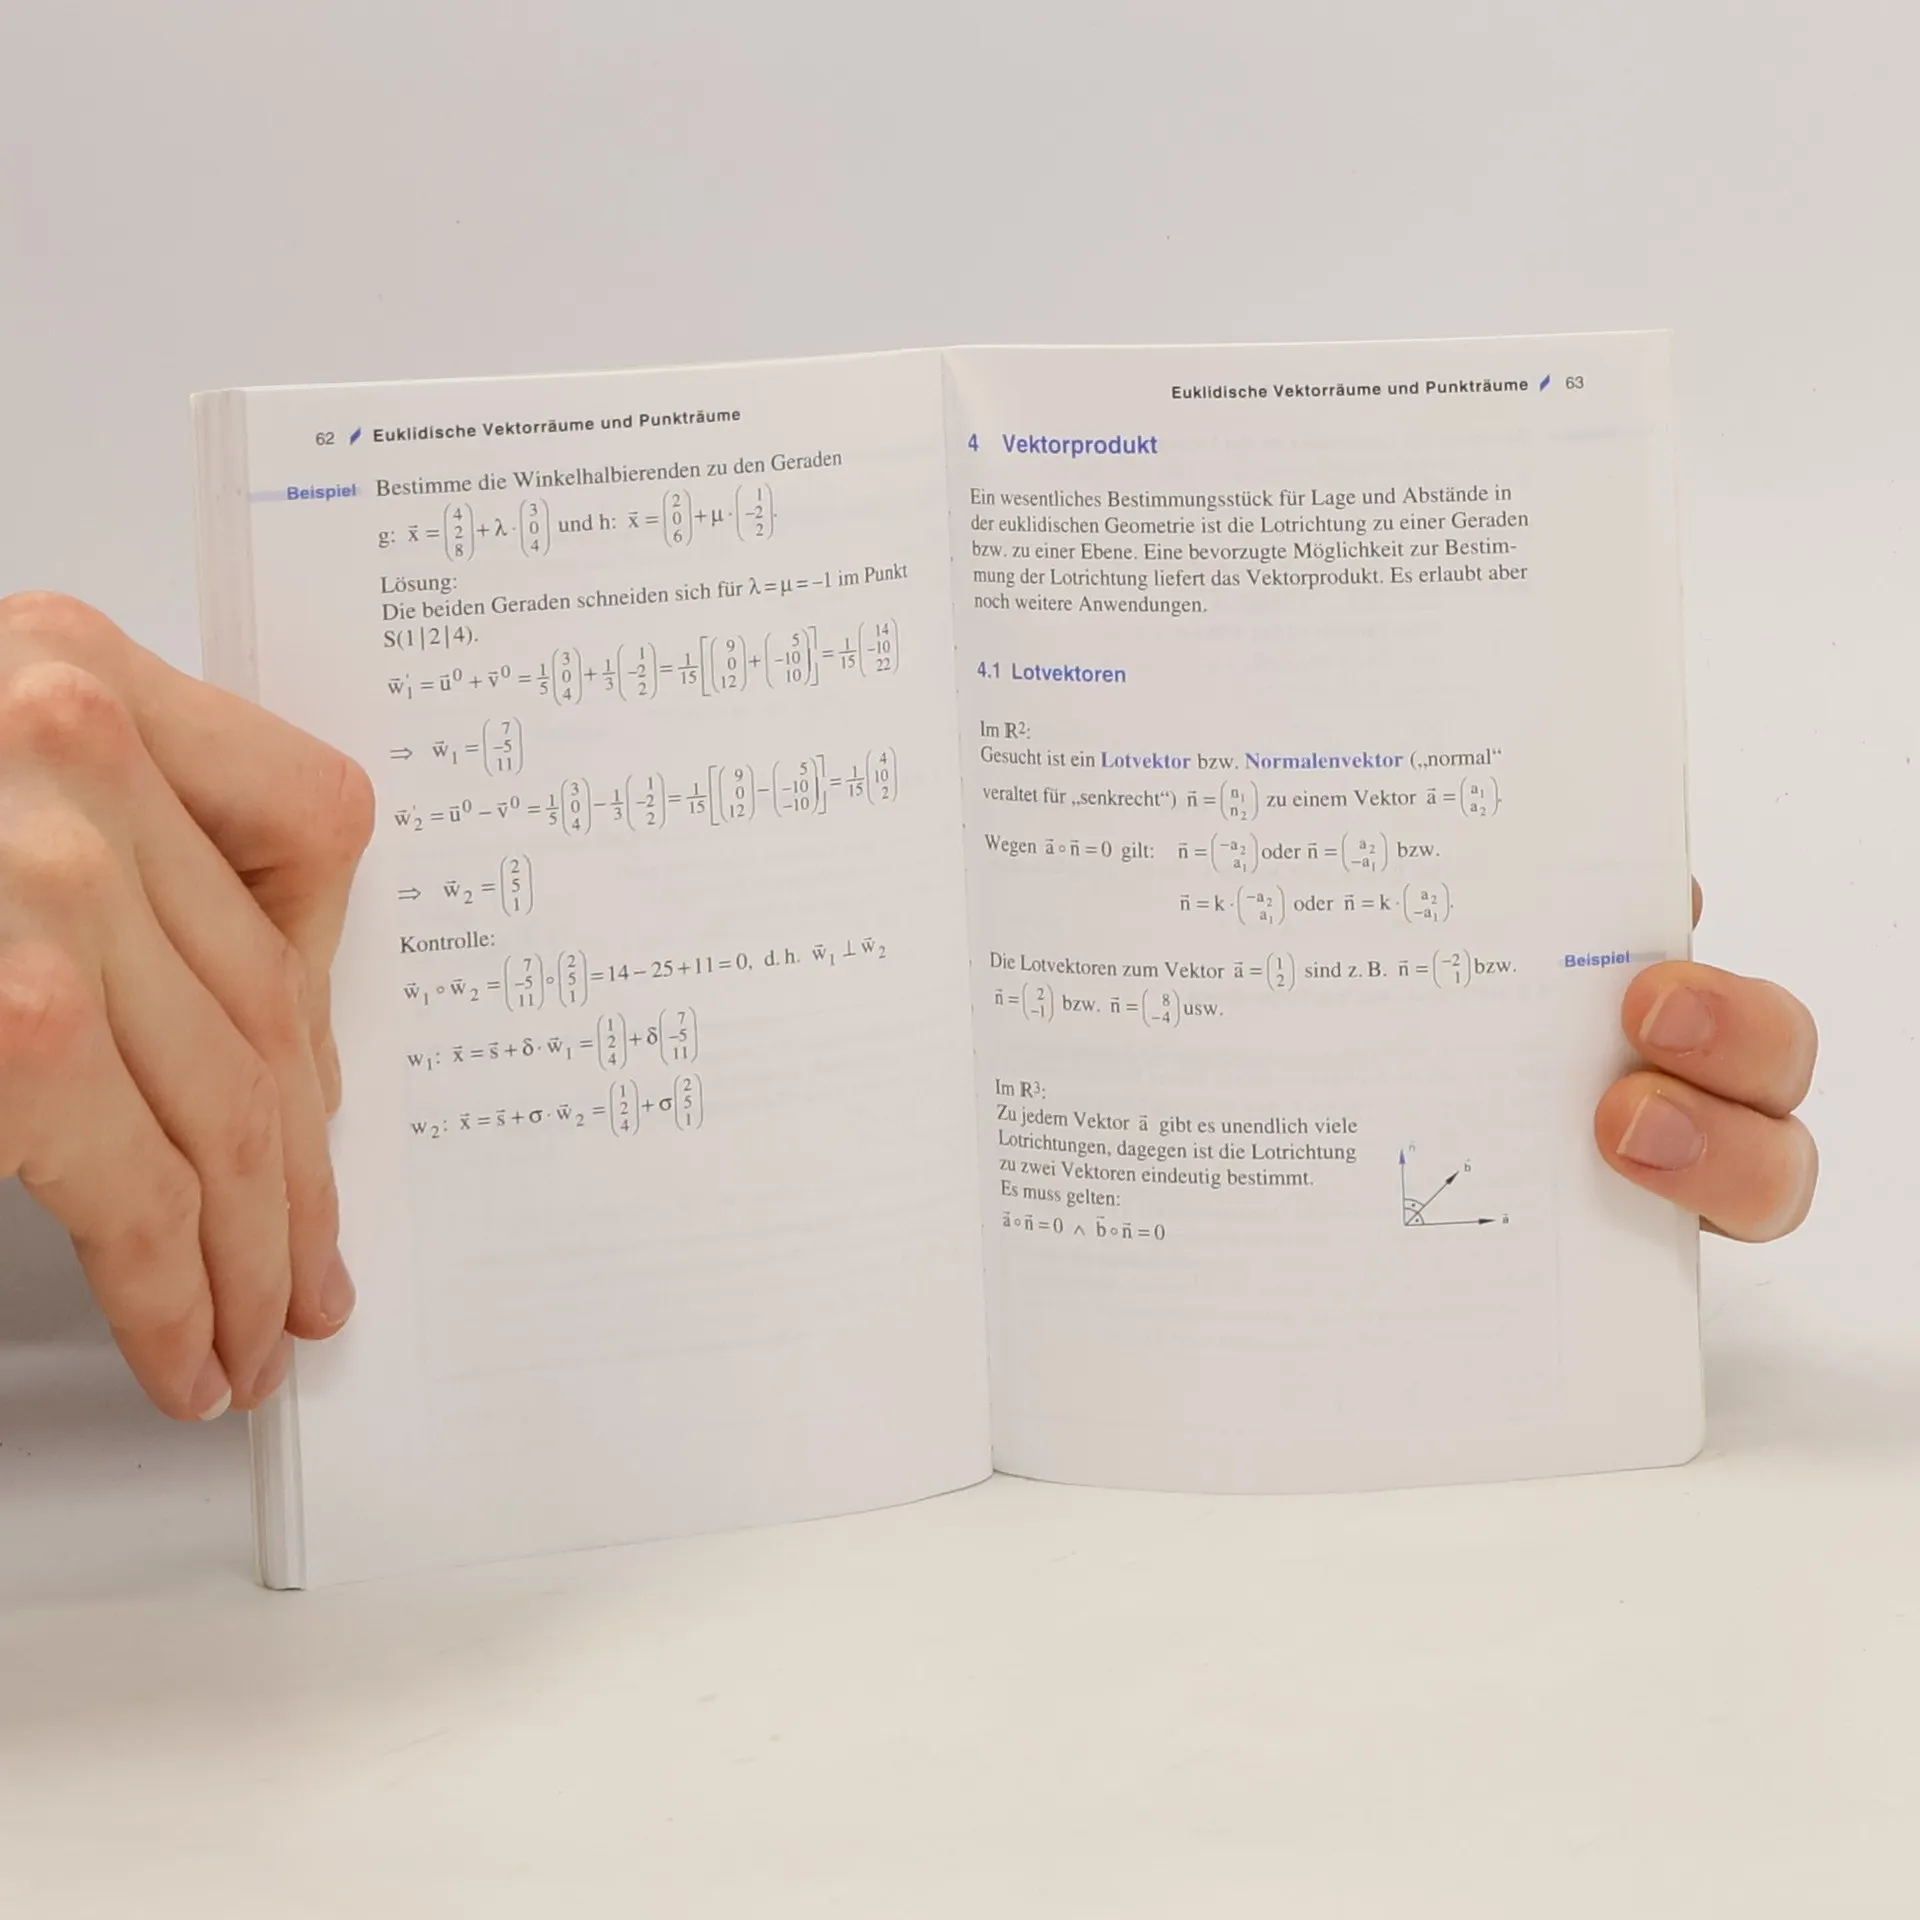 62 Euklidische Vektorräume und Punkträume
Beispiel Bestimme die Winkelhalbierenden zu den Geraden
g: x⃗ = (4 2 8) + λ · (3 0 4) und h: x⃗ = (2 0 6) + μ · (1 −2 2).
Lösung:
Die beiden Geraden schneiden sich für λ = μ = −1 im Punkt
S(1|2|4).
w⃗₁' = u⃗⁰ + v⃗⁰ = 1/5 (3 0 4) + 1/3 (1 −2 2) = 1/15 [(9 0 12) + (5 −10 10)] = 1/15 (14 −10 22)
⇒ w⃗₁ = (7 −5 11)
w⃗₂' = u⃗⁰ − v⃗⁰ = 1/5 (3 0 4) − 1/3 (1 −2 2) = 1/15 [(9 0 12) − (5 −10 −10)] = 1/15 (4 10 2)
⇒ w⃗₂ = (2 5 1)
Kontrolle:
w⃗₁ ∘ w⃗₂ = (7 −5 11) ∘ (2 5 1) = 14 − 25 + 11 = 0, d. h. w⃗₁ ⊥ w⃗₂
w₁: x⃗ = s⃗ + δ · w⃗₁ = (1 2 4) + δ (7 −5 11)
w₂: x⃗ = s⃗ + σ · w⃗₂ = (1 2 4) + σ (2 5 1)
Euklidische Vektorräume und Punkträume 63
4 Vektorprodukt
Ein wesentliches Bestimmungsstück für Lage und Abstände in
der euklidischen Geometrie ist die Lotrichtung zu einer Geraden
bzw. zu einer Ebene. Eine bevorzugte Möglichkeit zur Bestim-
mung der Lotrichtung liefert das Vektorprodukt. Es erlaubt aber
noch weitere Anwendungen.
4.1 Lotvektoren
Im ℝ²:
Gesucht ist ein Lotvektor bzw. Normalenvektor („normal“
veraltet für „senkrecht“) n⃗ = (n₁ n₂) zu einem Vektor a⃗ = (a₁ a₂).
Wegen a⃗ ∘ n⃗ = 0 gilt: n⃗ = (−a₂ a₁) oder n⃗ = (a₂ −a₁) bzw.
n⃗ = k · (−a₂ a₁) oder n⃗ = k · (a₂ −a₁).
Die Lotvektoren zum Vektor a⃗ = (1 2) sind z. B. n⃗ = (−2 1) bzw. Beispiel
n⃗ = (2 −1) bzw. n⃗ = (8 −4) usw.
Im ℝ³:
Zu jedem Vektor a⃗ gibt es unendlich viele
Lotrichtungen, dagegen ist die Lotrichtung
zu zwei Vektoren eindeutig bestimmt.
Es muss gelten:
a⃗ ∘ n⃗ = 0 ∧ b⃗ ∘ n⃗ = 0
n⃗
b⃗
a⃗